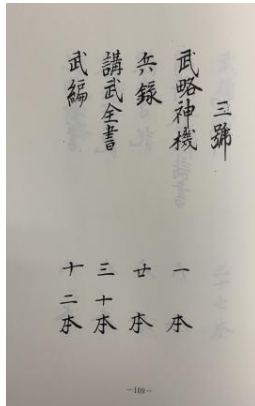 三號
武略神機 一本
兵錄 廿本
講武全書 三十本
武編 十二本
—109—